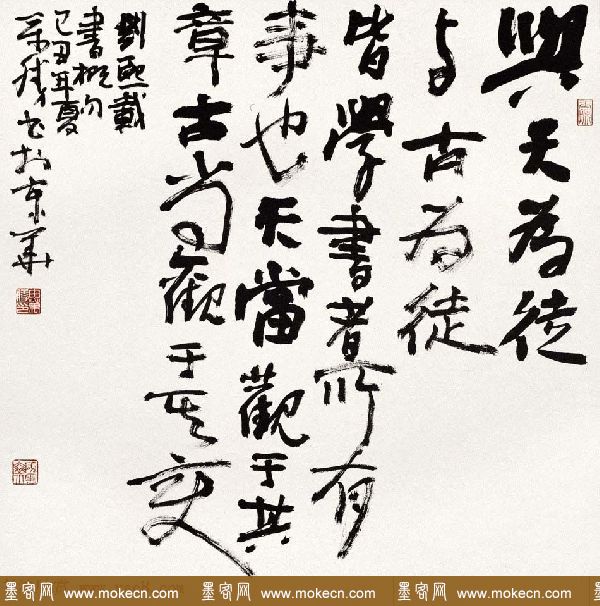 與天為徒
与古為徒
皆學書者所有
事也天當觀于其
章古当觀于其变
劉熙載
書概句
己丑年夏
书於京華
墨客网 www.mokecn.com 墨客网 www.mokecn.com 墨客网 www.mokecn.com 墨客网 www